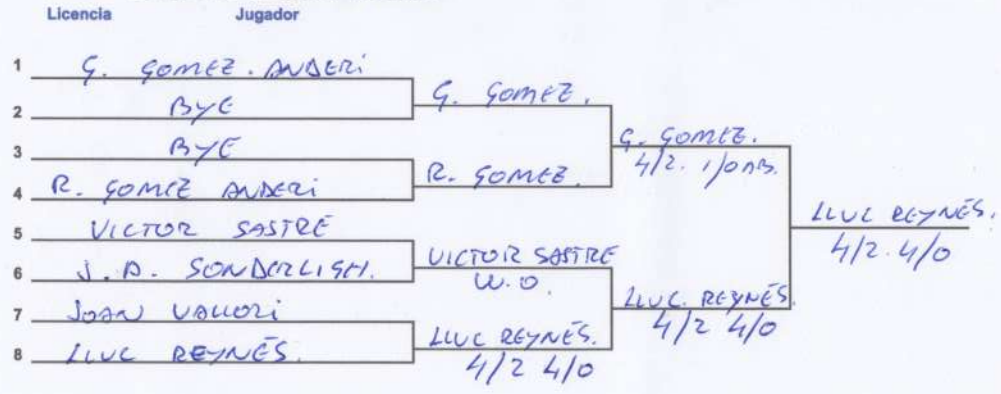 Licencia Jugador
1 G. GOMEZ. ANDERI
2 BYE
3 BYE
4 R. GOMEZ ANDERI
5 VICTOR SASTRE
6 J.A. SONDERLIGH.
7 JOAN VALLORI
8 LLUC REYNÉS.
G. GOMEZ.
R. GOMEZ.
VICTOR SASTRE
W.O.
LLUC REYNÉS.
4/2 4/0
G. GOMEZ.
4/2. 1/0 AB.
LLUC. REYNÉS.
4/2 4/0
LLUC REYNÉS.
4/2. 4/0